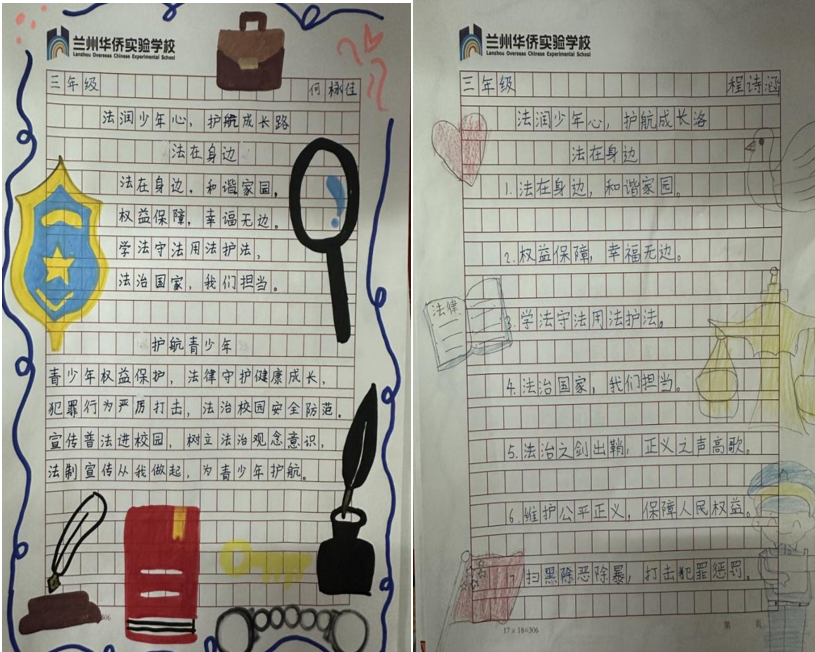 兰州华侨实验学校
Lanzhou Overseas Chinese Experimental School
三年级
何 佳
法润少年心，护航成长路
法在身边
法在身边，和谐家园，
权益保障，幸福无边。
学法守法用法护法，
法治国家，我们担当。
护航青少年
青少年权益保护，法律守护健康成长，
犯罪行为严厉打击，法治校园安全防范。
宣传普法进校园，树立法治观念意识，
法制宣传从我做起，为青少年护航。
兰州华侨实验学校
Lanzhou Overseas Chinese Experimental School
三年级 程诗涵
法润少年心，护航成长洛
法在身边
1.法在身边，和谐家园。
2.权益保障，幸福无边。
法律
3.学法守法用法护法，
4.法治国家，我们担当。
5.法治之剑出鞘，正义之声高歌。
6.维护公平正义，保障人民权益。
7.扫黑除恶除暴，打击犯罪惩罚。
17×18=306 第 页